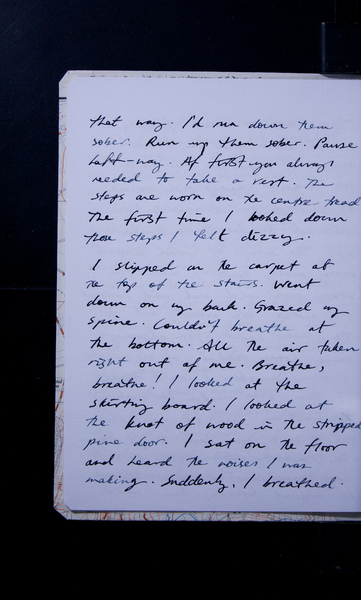 that way. I'd run down them
sober. Run up them sober. Pause
half-way. At first you always
needed to take a rest. The
steps are worn on the centre tread
The first time I looked down
those steps I felt dizzy.
I slipped on the carpet at
the top of the stairs. Went
down on my back. Grazed my
spine. Couldn't breathe at
the bottom. All the air taken
right out of me. Breathe,
breathe! I looked at the
skirting board. I looked at
the knot of wood in the stripped
pine door. I sat on the floor
and heard the noises I was
making. Suddenly, I breathed.